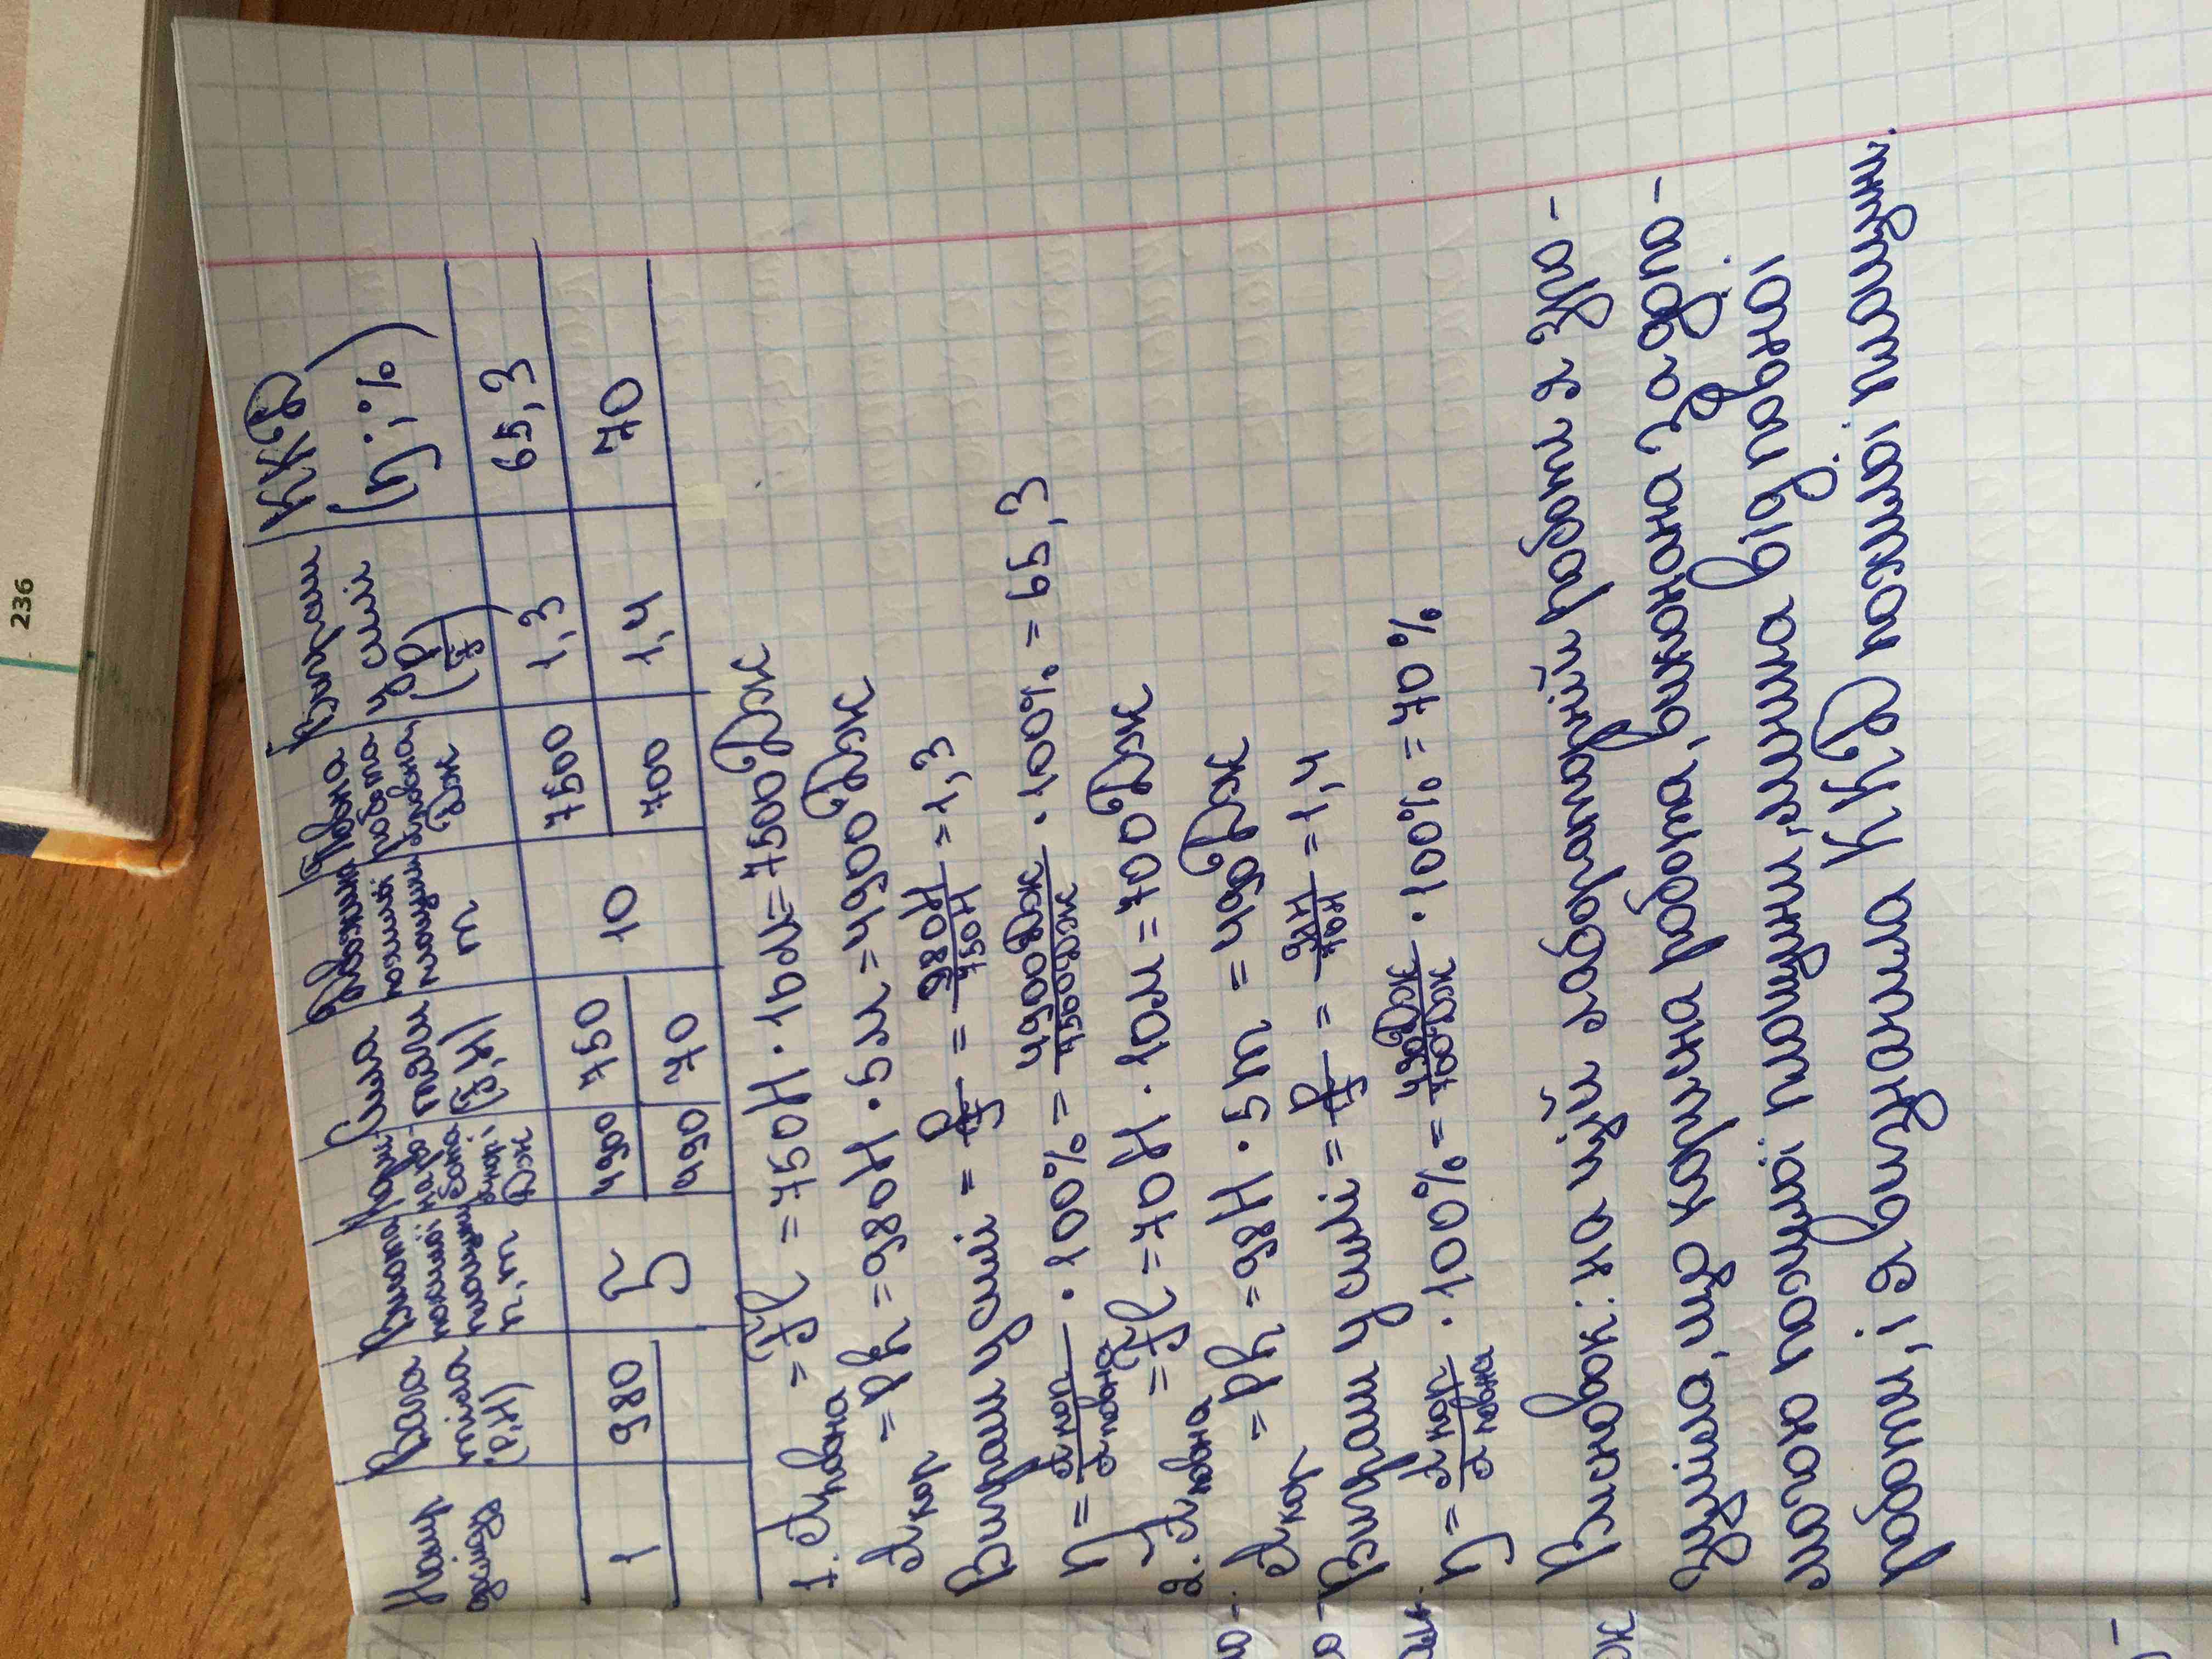 236
Номер досліду | Вага тіла (P, H) | Висота похилої площини h, m | Кори- сна ро- бота Aкор, Дж | Сила тяги (F, H) | Довжина похилої площини m | Повна робота Aповна, Дж | Виграш у силі (P/F) | ККД (η; %)
1 | 980 | 5 | 4900 | 750 | 10 | 7500 | 1,3 | 65,3
490 | 70 | 700 | 1,4 | 70
1. Aповна = Fl = 750H · 10м = 7500Дж
Aкор = Ph = 980H · 5м = 4900Дж
Виграш у силі = P/F = 980H/750H = 1,3
η = Aкор/Aповна · 100% = 4900Дж/7500Дж · 100% = 65,3
2. Aповна = Fl = 70H · 10м = 700Дж
Aкор = Ph = 98H · 5m = 490Дж
Виграш у силі = P/F = 98H/70H = 1,4
η = Aкор/Aповна · 100% = 490Дж/700Дж · 100% = 70%
Висновок: на цій лабораторній роботі я зро-
зуміла, що корисна робота, виконана за допо-
могою похилої площини, менша від повної
роботи, і я визначила ККД похилої площини.